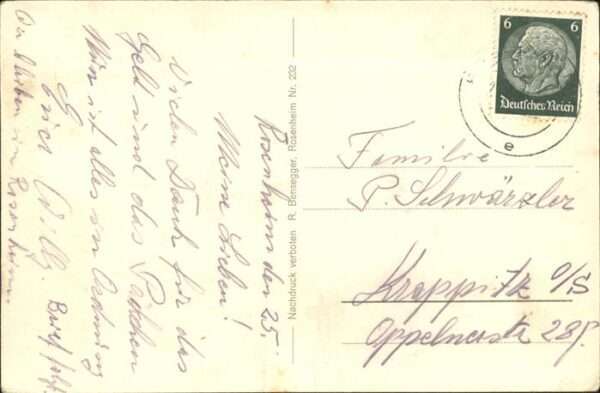 Rosenheim den 25.
Meine Lieben!
Vielen Dank für das
Geld und das Packen
Nun ist alles in Ordnung
Euer Willy. Brief folgt.
Wir bleiben in Rosenheim
Nachdruck verboten R. Bensegger, Rosenheim Nr. 202
6 6
Deutsches Reich
e
Familie
P. Schwärzler
Krappitz O/S
Oppelnerstr 28